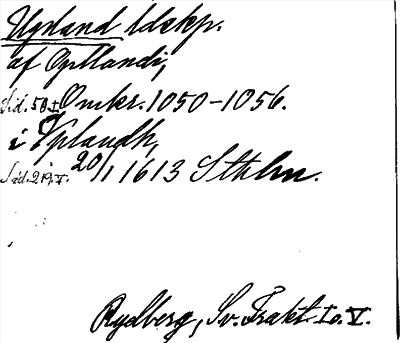 Uppland ldskp.
af Opllandi,
Sid. 58 I Omkr. 1050-1056.
i Vplandh,
Sid. 219. V. 20/1 1613 Sthlm.
Rydberg, Sv. Trakt. I o. V.